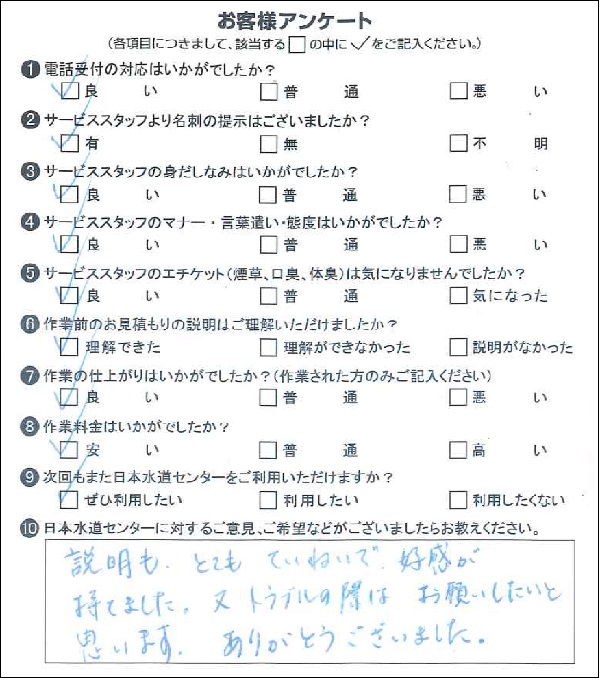 お客様アンケート
(各項目につきまして、該当する□の中に✓をご記入ください。)
❶電話受付の対応はいかがでしたか?
□良い □普通 □悪い
❷サービススタッフより名刺の提示はございましたか?
□有 □無 □不明
❸サービススタッフの身だしなみはいかがでしたか?
□良い □普通 □悪い
❹サービススタッフのマナー・言葉遣い・態度はいかがでしたか?
□良い □普通 □悪い
❺サービススタッフのエチケット(煙草、口臭、体臭)は気になりませんでしたか?
□良い □普通 □気になった
❻作業前のお見積もりの説明はご理解いただけましたか?
□理解できた □理解ができなかった □説明がなかった
❼作業の仕上がりはいかがでしたか?(作業された方のみご記入ください)
□良い □普通 □悪い
❽作業料金はいかがでしたか?
□安い □普通 □高い
❾次回もまた日本水道センターをご利用いただけますか?
□ぜひ利用したい □利用したい □利用したくない
❿日本水道センターに対するご意見、ご希望などがございましたらお教えください。
説明も、とても ていねいで、好感が
持てました。又 トラブルの際は お願いしたいと
思います。 ありがとうございました。